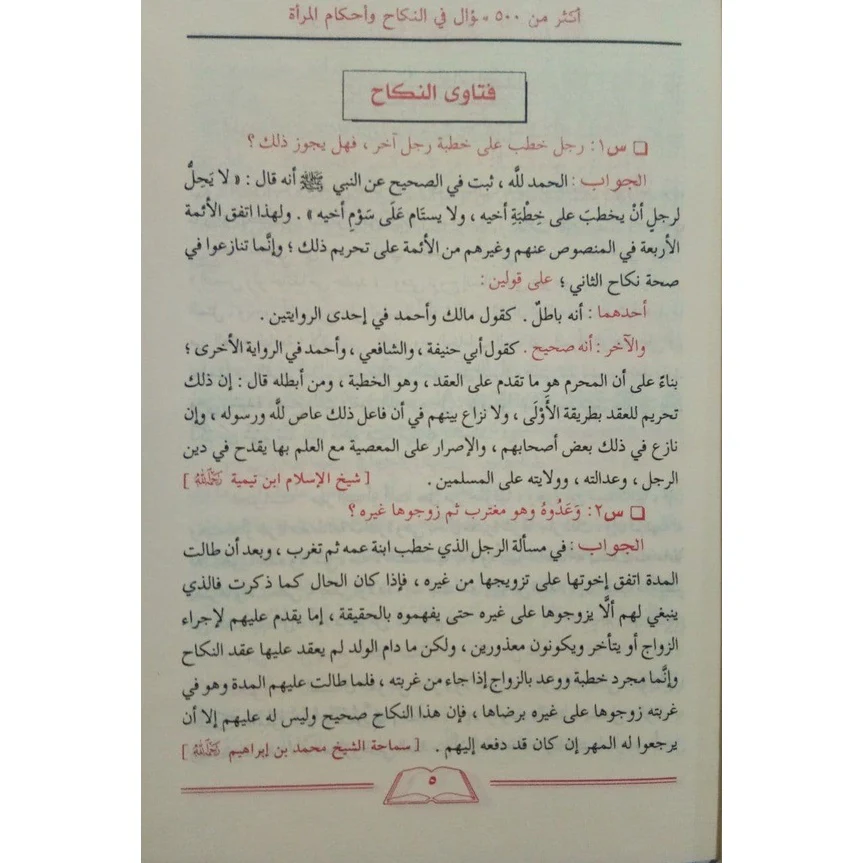 أكثر من ٥٠٠ سؤال في النكاح وأحكام المرأة
فتاوى النكاح
❑ س١: رجل خطب على خطبة رجل آخر ، فهل يجوز ذلك ؟
الجواب : الحمد للَّه ، ثبت في الصحيح عن النبي ﷺ أنه قال : « لا يَحِلُّ
لرجلٍ أنْ يخطبَ على خِطْبَةِ أخيه ، ولا يستَام عَلَى سَوْمِ أخيه » . ولهذا اتفق الأئمة
الأربعة في المنصوص عنهم وغيرهم من الأئمة على تحريم ذلك ؛ وإنَّما تنازعوا في
صحة نكاح الثاني ؛ على قولين :
أحدهما : أنه باطلٌ . كقول مالك وأحمد في إحدى الروايتين .
والآخر : أنه صحيح . كقول أبي حنيفة ، والشافعي ، وأحمد في الرواية الأخرى ؛
بناءً على أن المحرم هو ما تقدم على العقد ، وهو الخطبة ، ومن أبطله قال : إن ذلك
تحريم للعقد بطريقة الأَوْلَى ، ولا نزاع بينهم في أن فاعل ذلك عاص للَّه ورسوله ، وإن
نازع في ذلك بعض أصحابهم ، والإصرار على المعصية مع العلم بها يقدح في دين
الرجل ، وعدالته ، وولايته على المسلمين . [ شيخ الإسلام ابن تيمية رَحِمَهُ اللهُ ]
❑ س٢: وَعَدُوهُ وهو مغترب ثم زوجوها غيره ؟
الجواب : في مسألة الرجل الذي خطب ابنة عمه ثم تغرب ، وبعد أن طالت
المدة اتفق إخوتها على تزويجها من غيره ، فإذا كان الحال كما ذكرت فالذي
ينبغي لهم ألَّا يزوجوها على غيره حتى يفهموه بالحقيقة ، إما يقدم عليهم لإجراء
الزواج أو يتأخر ويكونون معذورين ، ولكن ما دام الولد لم يعقد عليها عقد النكاح
وإنَّما مجرد خطبة ووعد بالزواج إذا جاء من غربته ، فلما طالت عليهم المدة وهو في
غربته زوجوها على غيره برضاها ، فإن هذا النكاح صحيح وليس له عليهم إلا أن
يرجعوا له المهر إن كان قد دفعه إليهم . [ سماحة الشيخ محمد بن إبراهيم رَحِمَهُ اللهُ ]
٥